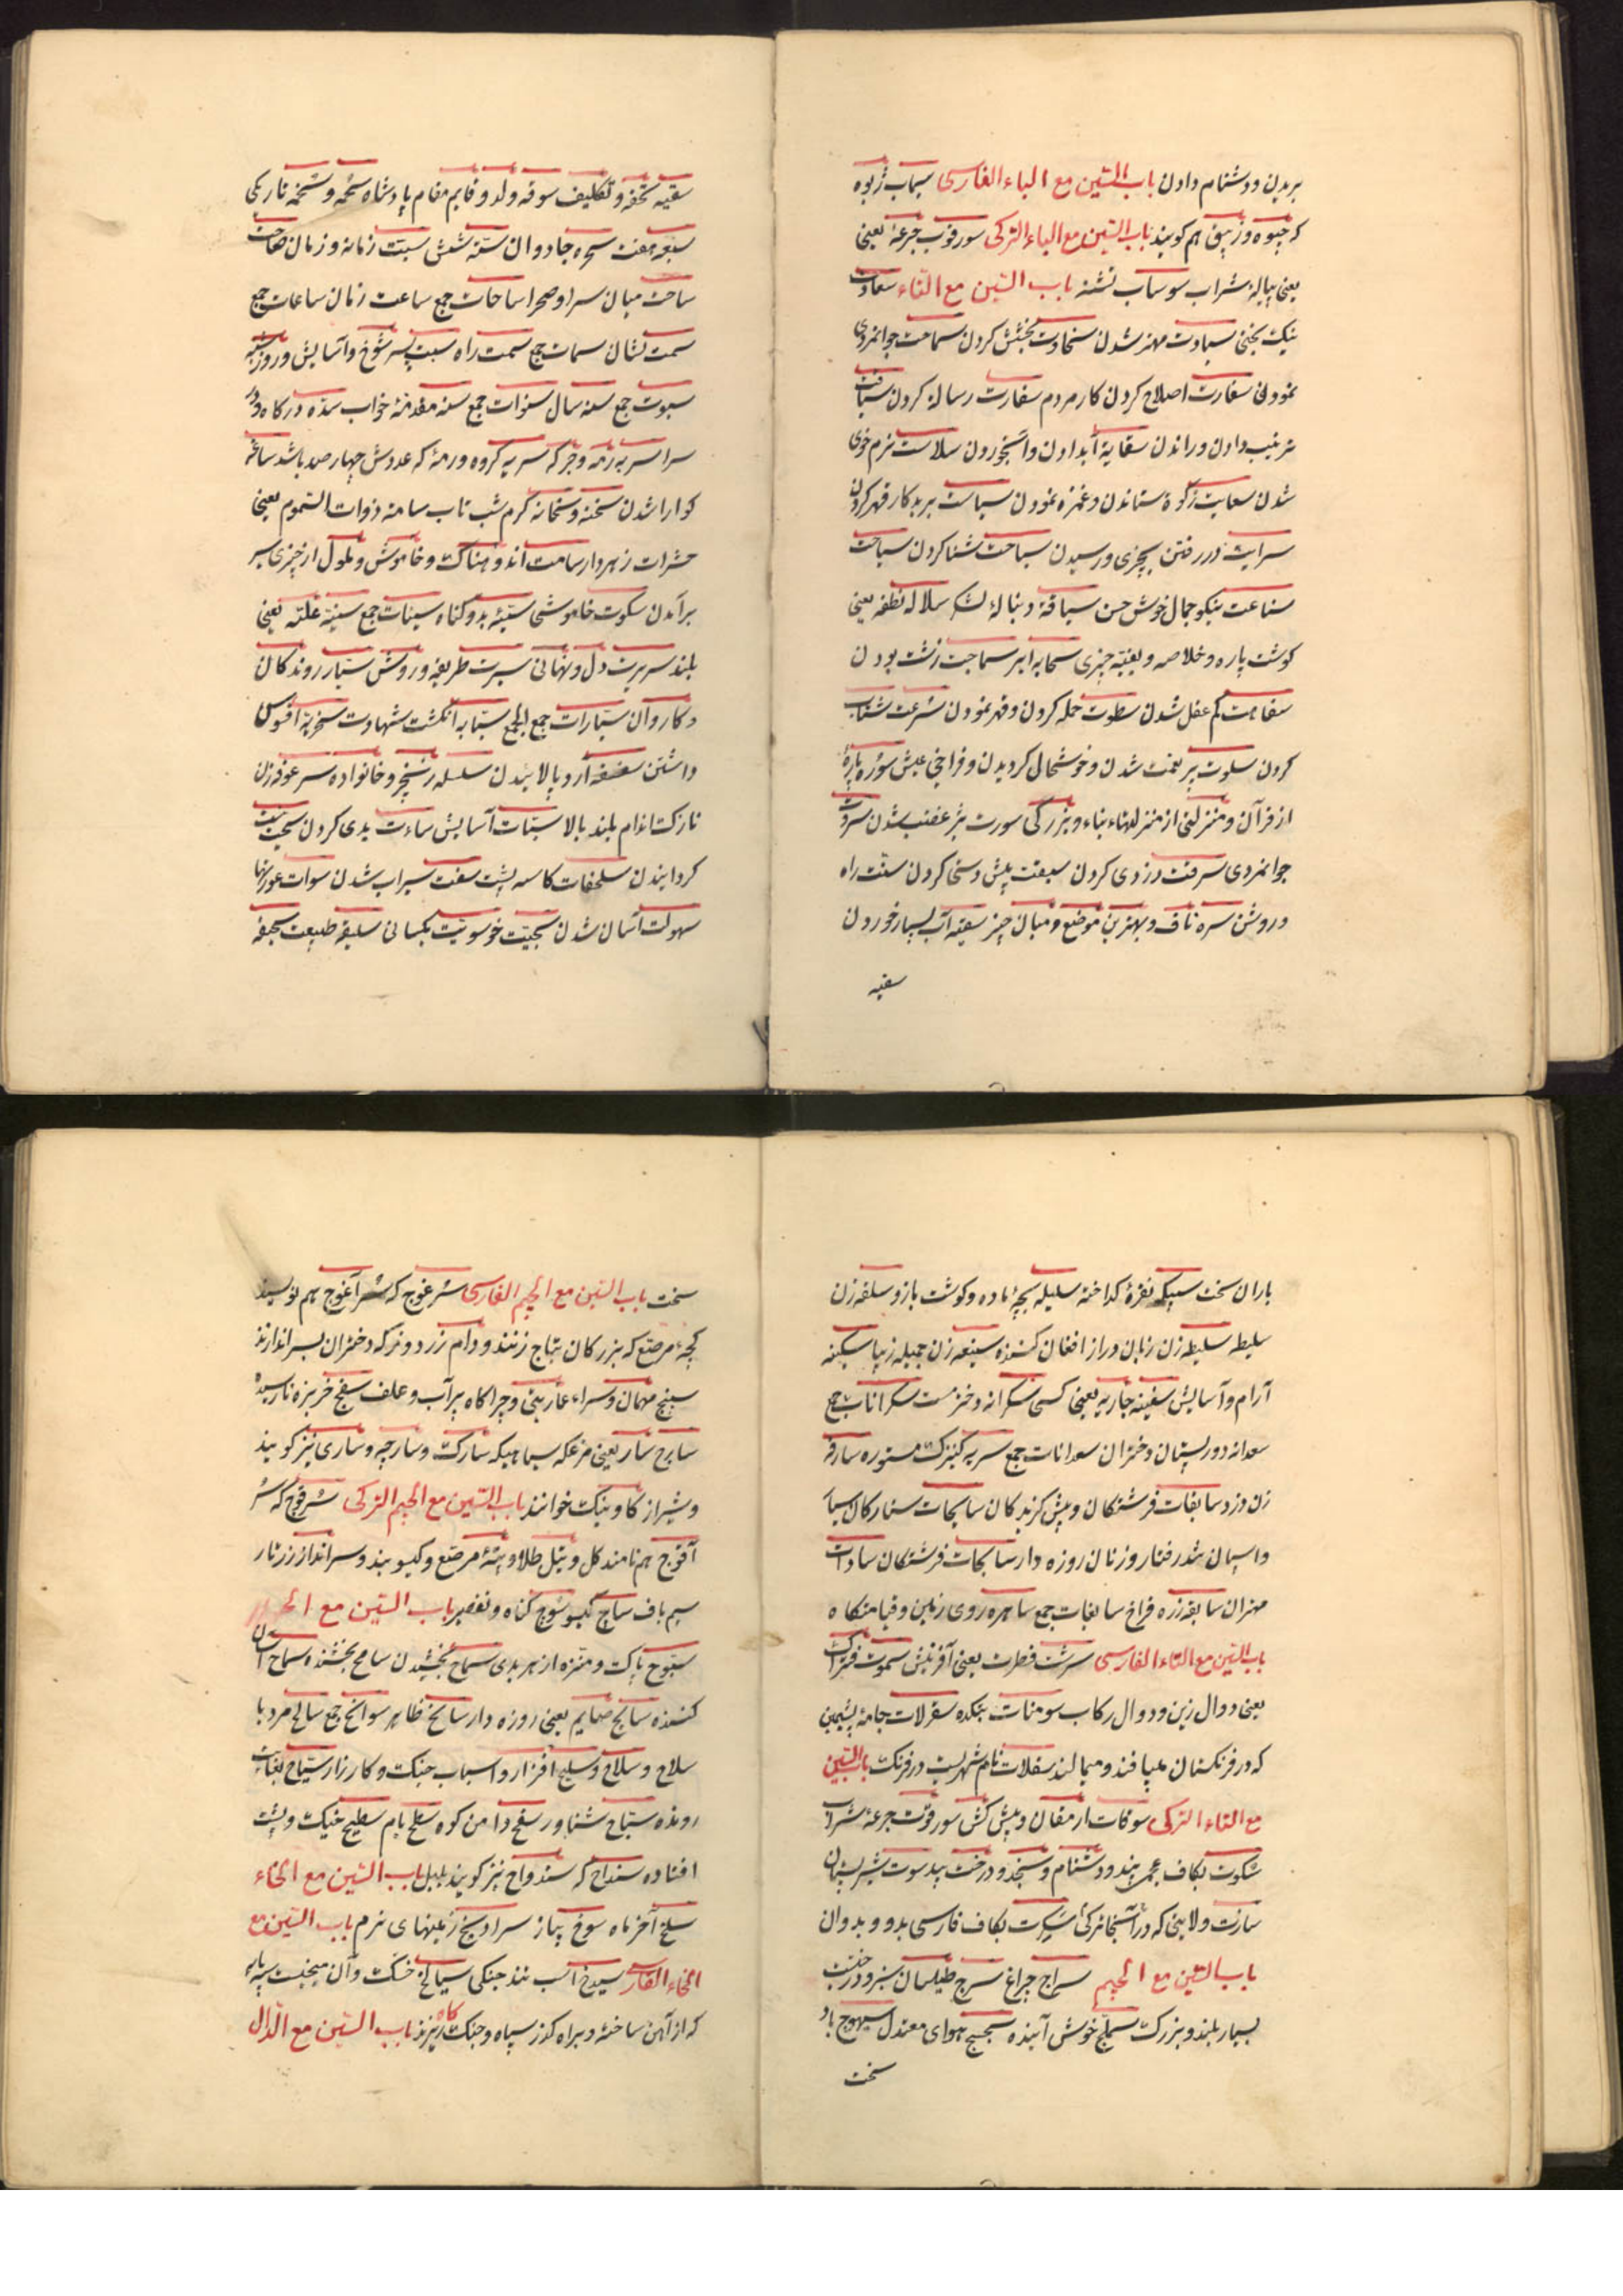 بریدن و دشنام دادن باب السّین مع الباء الفارسی سیماب ژیوه
که جیوه و زیبق هم کویند باب السّین مع الباء الترکی سورقوب جرعهٔ یعنی
یعنی پیالهٔ شراب سوساب تشنه باب السّین مع التّاء سعادت
نیک بختی سیادت مهتر شدن سخاوت بخشش کردن سماحت جوانمردی
نمودن سفارت اصلاح کردن کار مردم سفارت رساله کردن سیاقت
ترتیب دادن و راندن سقایة آبدادن و آبخوردن سلاست نرم خوی
شدن سعایت زکوة ستاندن و غمزه نمودن سیاست بر بدکار قهر کردن
سرایت در رفتن بچیزی و رسیدن سباحت شنا کردن سیاحت
سناعت نیکو جمال خوش حسن سیاقة دنبالهٔ لشکر سلاله نطفه یعنی
کوشت پاره و خلاصه و بقیّه چیزی سحابه ابر سماجت زشت بودن
سفاهت کم عقل شدن سطوت حمله کردن و قهر نمودن سرعت شتاب
کردن سلوت پر نعمت شدن و خوشحالی کردیدن و فراخی عیش سوره پارهٔ
از قرآن و منزلتی از منزلها، بناء و بزرکی سورت تیز غضب شدن سروت
جوانمردی سرقت دزدی کردن سبقت پیش دستی کردن سنّت راه
و روشن سره ناف و بهترین موضع و میان چیز سقیه آب بسیار خوردن
سقیه
سقیه تحفه و تکلیف سوقه ولد و قایم مقام پادشاه سحمه و سخمه تاریکی
سبعه هفت سحره جادوان ستّه شش سبّت زمانه و زمان صاحت
ساحت میان سرا و صحرا ساحات جمع ساعت زمان ساعات جمع
سمت نشان سمات جمع سمت راه سبت پسر شوخ و آسایش و روز شنبه
سبوت جمع سنه سال سنوات جمع سنه مقدّمهٔ خواب سدّه درکاه و در
سرا سربه رمه و جرکه سریه کروه و رمهٔ که عددش چهار صد باشد ساغه
کوارا شدن سخنه و سخانه کرم شب تاب سامه ذوات السّموم یعنی
حشرات زهر دار سامت اندوهناک و خاموش و ملول از چیزی سیر
برآمدن سکوت خاموشی سیّئه بد و کناه سیئات جمع سنیّة علیّه یعنی
بلند سریرت دل و نهانی سیرت طریقه و روش سیّار روندکان
و کاروان سیّارات جمع الجمع سبّابه انکشت شهادت سخریة افسوس
داشتن سفسفه آرد پالاییدن سلسله زنجیر و خانواده سرعوفه زن
نازک اندام بلند بالا سبّات آسایش ساءت بدی کردن سجیّیت
کردانیدن سلحفات کاسه پشت سقت سیراب شدن سوات عورتها
سهولت آسان شدن سجیّت خو سویّت یکسانی سلیقه طبیعت سجیفه
باران سخت سبیکه نقرهٔ کداخته سلیله بچهٔ ماده و کوشت بازو سلقه زن
سلیطه سلیطه زن زبان دراز افغان کننده سنیعه زن جمیله زیبا سکینه
آرام و آسایش سفینه جاریه یعنی کشی سکرانه دختر مست سکرانات جمع
سعدانه دور پستان دختران سعدانات جمع سریه کنیزک مستوره سارقه
زن دزد سابقات فرشتکان و پیش کیرندکان سابحات ستارکان سیّار
و اسپان تندرفتار و زنان روزه دار سایحات فرشتکان سادات
مهتران سابغه زره فراخ سابغات جمع ساهره روی زمین و قیامتکاه
باب السّین مع التّاء الفارسی سرشت فطرت یعنی آفرینش سموت فتراک
یعنی دوال زین و دوال رکاب سومنات بتکده سقرلات جامهٔ پشمین
که در فرنکستان میبافند و میمالند سقلات نام شهریست در فرنک باب السّین
مع التاء الترکی سوقات ارمغان و پیش کش سورقوت جرعهٔ شراب
سکوت بکاف عجمی پند و دشنام و سنجد و درخت بید سوت شیر پستان
سارت ولایتی که در آستخانرکی سکرت بکاف فارسی بدو و بدوان
باب السّین مع الجیم سراج چراغ سرج طیلسان سبز و درخت
بسیار بلند و بزرک سملج خوش آینده سجسج هوای معتدل سیهوج باد
سخت
سخت باب السّین مع الجیم الفارسی سرغوج که سرآغوج هم نویسند
کجهٔ مرصّع که بزرکان بتاج زنند و دام زرد و زر که دختران بسر اندازند
سپنج مهمان و سراء عاریتی و چراکاه پر آب و علف سفج خربزه نارسیده
سارج سار یعنی مرغکه سیاهیکه سارک و سارچه و ساری نیز کویند
و شیراز کاوینک خوانند باب السّین مع الجیم الترکی سرقوج که سر
آقوج هم نامند کل و بتل طلا و بتهٔ مرصّع و کیسو بند و سر انداز زرتار
سیم باف ساج کیسو سوج کناه و تقصیر باب السّین مع الحاء
سبّوح پاک و منزّه از هر بدی سماح بخشیدن سامح بخشنده سماح آسان
کننده سایح صایم یعنی روزه دار سانح ظاهر سوانح جمع سالح مرد با
سلاح و سلاح و سلیح افزار و اسباب جنک و کارزار سیّاح بغایت
رونده سبّاح شناور سفح دامن کوه سطح بام سطیح خیک و پشت
افتاده سنداح که سندواح نیز کویند بلبل باب السّین مع الخاء
سلخ آخر ماه سوخ پیاز سرادیخ زمینهای نرم باب السّین مع
الخاء الفارسی سیدخ اسب تند جنکی سیمالخ خسک و آن میخیست سه پایه
که از آهن ساخته و براه کذر سپاه و جنک کاه ریزند باب السّین مع الدّال